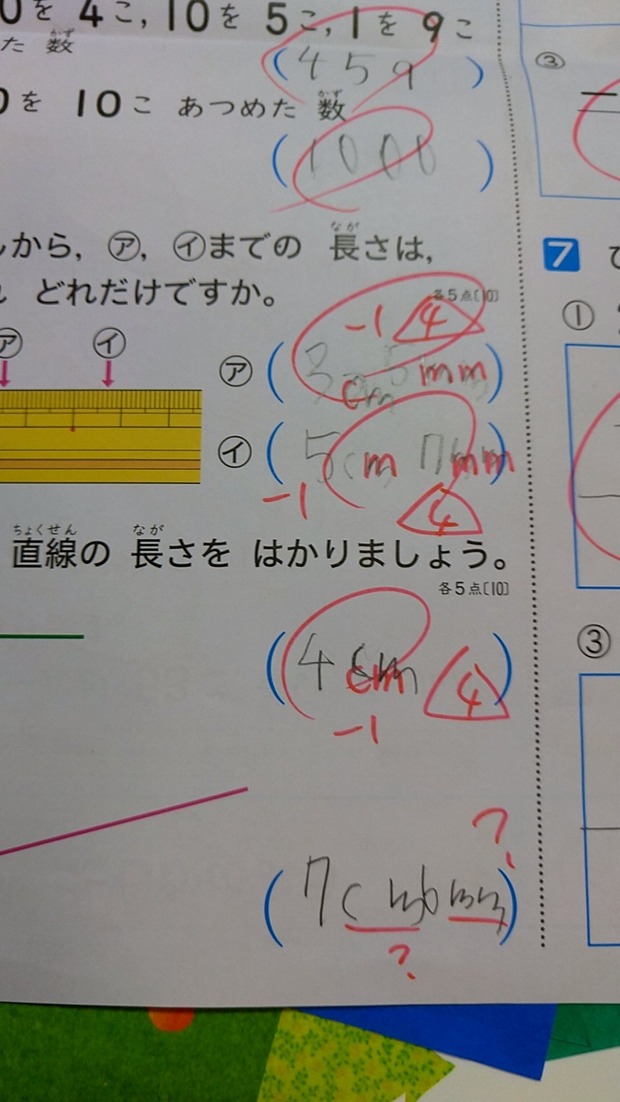 0を 4こ, 10を 5こ, 1を 9こ
た 数
かず
(459)
0を 10こ あつめた 数
かず
(1000)
から, ㋐, ㋑までの 長さは,
なが
どれだけですか。
各5点〔10〕
-1 4
㋐ ㋑
㋐ (3cm 5mm)
㋑ (5cm 7mm)
-1 4
直線の 長さを はかりましょう。
ちょくせん なが
各5点〔10〕
(4cm) 4
-1
?
(7cm6mm)
?
③
7 ひ
①
③